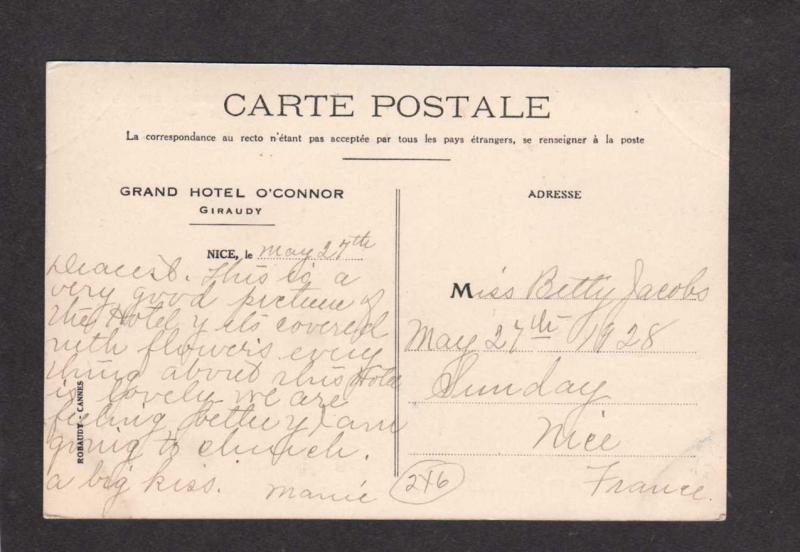 CARTE POSTALE
La correspondance au recto n'étant pas acceptée par tous les pays étrangers, se renseigner à la poste
GRAND HOTEL O'CONNOR
GIRAUDY
NICE, le May 27th
Dearest. This is a
very good picture of
the Hotel y its covered
with flowers every
thing about this Hotel
is lovely we are
feeling better y I am
going to church.
a big kiss.
Mamie
ROBAUDY - CANNES
ADRESSE
Miss Betty Jacobs
May 27th 1928
Sunday
Nice
France.
2x6